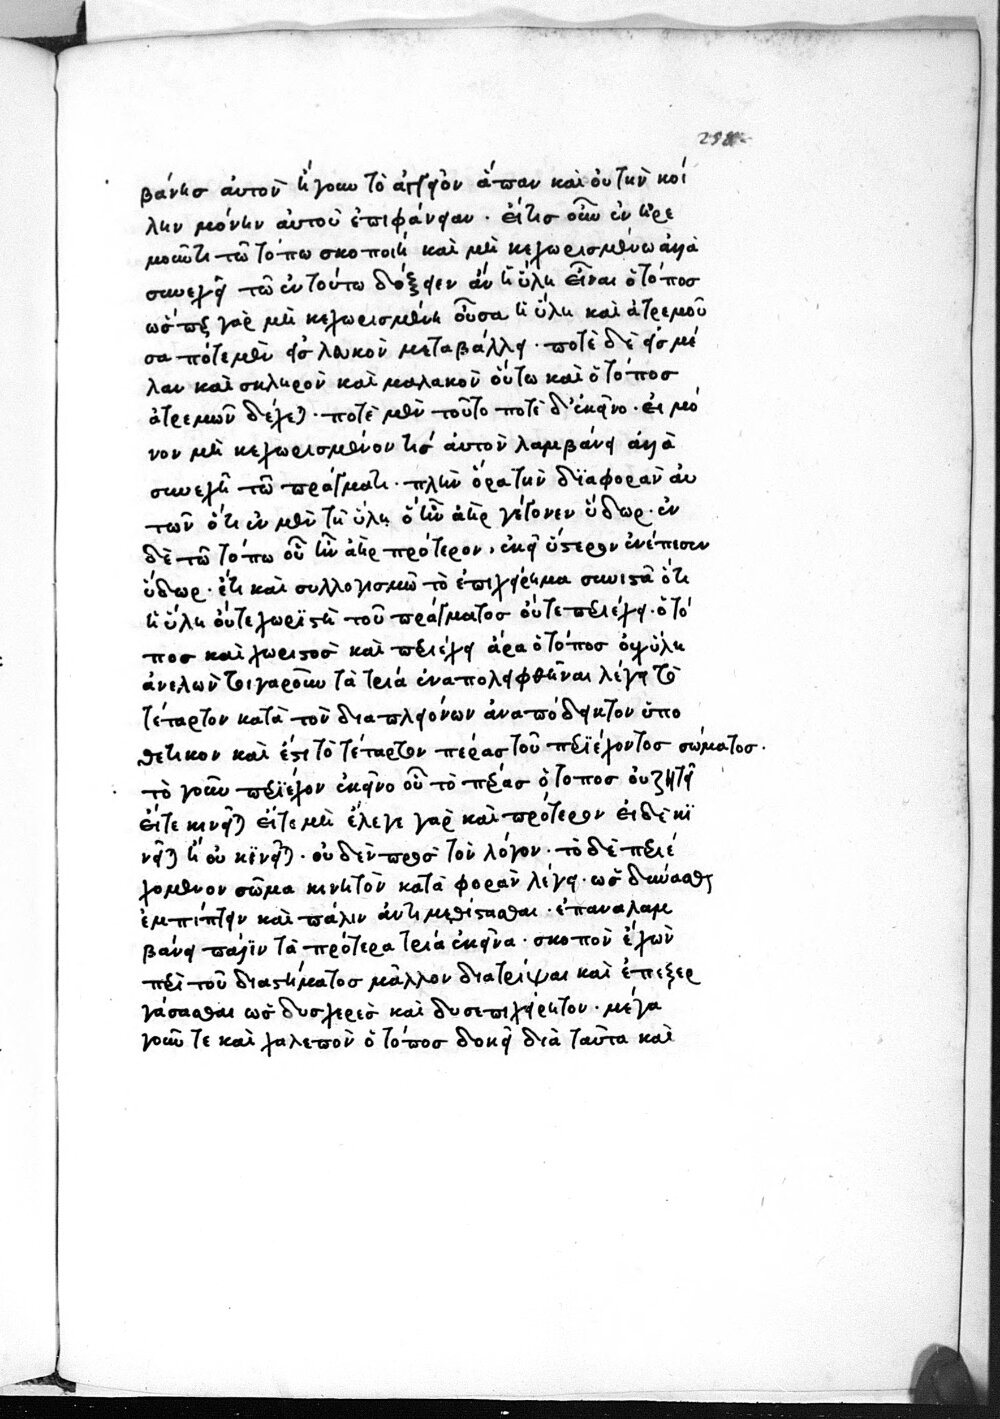 258
βάνης αὐτον ἤγουν τὸ ἀγγεῖον ἅπαν καὶ οὐ τὴν κοί
λην μόνην αὐτοῦ ἐπιφάνειαν · εἴ τις οὖν ἐν ἠρε
μοῦντι τῶ τόπω σκοποίη καὶ μὴ κεχωρισμένω ἀλλὰ
συνεχεῖ τῶ ἐν τούτω δόξειεν ἂν ἡ ὕλη εἶναι ὁ τόπος
ὥσπερ γὰρ μὴ κεχωρισμένη οὖσα ἡ ὕλη καὶ ἀτρεμοῦ
σα πότε μὲν εἰς λευκὸν μεταβάλλει · ποτὲ δὲ εἰς μέ
λαν καὶ σκληρὸν καὶ μαλακὸν οὕτω καὶ ὁ τόπος
ἀτρεμῶν δέχεται · ποτὲ μὲν τοῦτο ποτὲ δ' ἐκεῖνο · εἰ μό
νον μὴ κεχωρισμένον τις αὐτὸν λαμβάνει ἀλλὰ
συνεχῆ τῶ πράγματι · πλὴν ὅρα τὴν διαφορὰν αὐ
τῶν ὅτι ἐν μὲν τῇ ὕλη ὃ ἦν ἀὴρ γέγονεν ὕδωρ · ἐν
δὲ τῶ τόπω οὗ ἦν ἀὴρ πρότερον, ἐκεῖ ὕστερον ἐνέπεσεν
ὕδωρ · ἔτι καὶ συλλογισμῶ τὸ ἐπιχείρημα συνιστᾶ ὅτι
ἡ ὕλη οὔτε χωριστὴ τοῦ πράγματος οὔτε περιέχει · ὁ τό
πος καὶ χωριστὸς καὶ περιέχει ἄρα ὁ τόπος οὐχ ὕλη
ἀνελὼν τοιγαροῦν τὰ τρία ἐναπολειφθῆναι λέγει τὸ
τέταρτον κατὰ τὸν διὰ πλειόνων ἀναπόδεικτον ὑπο
θετικον καὶ ἔστι τὸ τέταρτον πέρας τοῦ περιέχοντος σώματος ·
τὸ γοῦν περιέχον ἐκεῖνο οὗ τὸ πέρας ὁ τοπος οὐ ζητεῖ
εἴτε κινεῖται εἴτε μὴ ἔλεγε γὰρ καὶ πρότερον εἰ δὲ κι
νεῖται ἢ οὐ κινεῖται · οὐδὲν πρὸς τὸν λόγον · τὸ δὲ περιε
χόμενον σῶμα κινητὸν κατὰ φορὰν λέγει · ὡς δύνασθαι
ἐμπίπτειν καὶ πάλιν ἀντιμεθίστασθαι · ἐπαναλαμ
βάνει πάλιν τὰ πρότερα τρία ἐκεῖνα · σκοπὸν ἔχων
περὶ τοῦ διαστήματος μᾶλλον διατρίψαι καὶ ἐπεξερ
γάσασθαι ὡς δυσχερὲς καὶ δυσεπιχείρητον · μέγα
γοῦν τε καὶ χαλεπὸν ὁ τόπος δοκεῖ διὰ ταῦτα καὶ